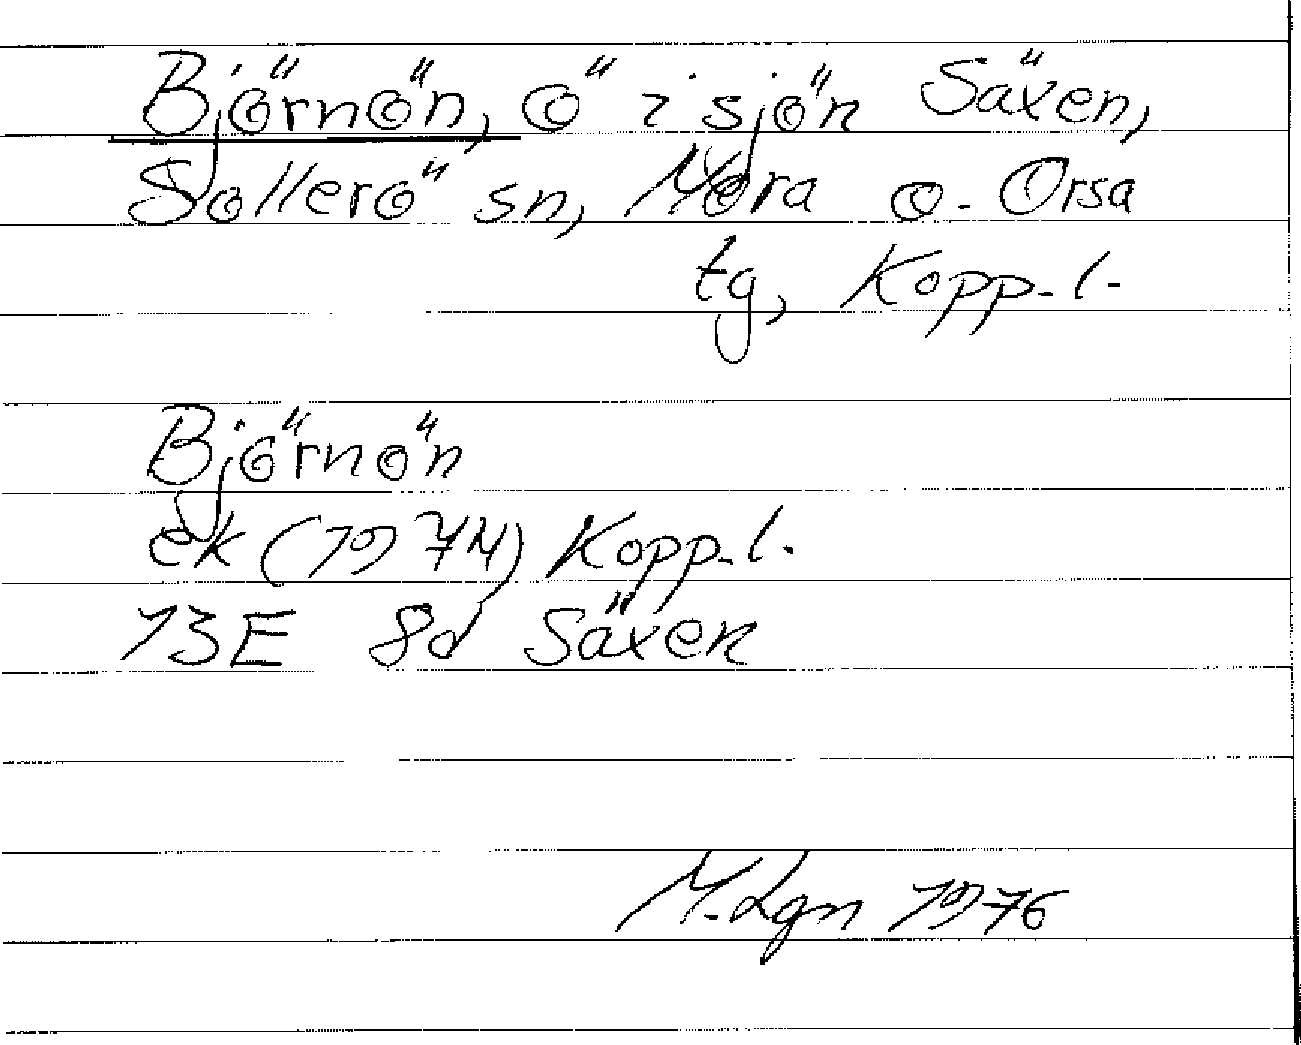 Björnön, ö i sjön Säxen,
Sollerö sn, Mora o. Orsa
tg, Kopp. l.
Björnön
ek (1974) Kopp. l.
13E 8d Säxen
M. Lgn 1976